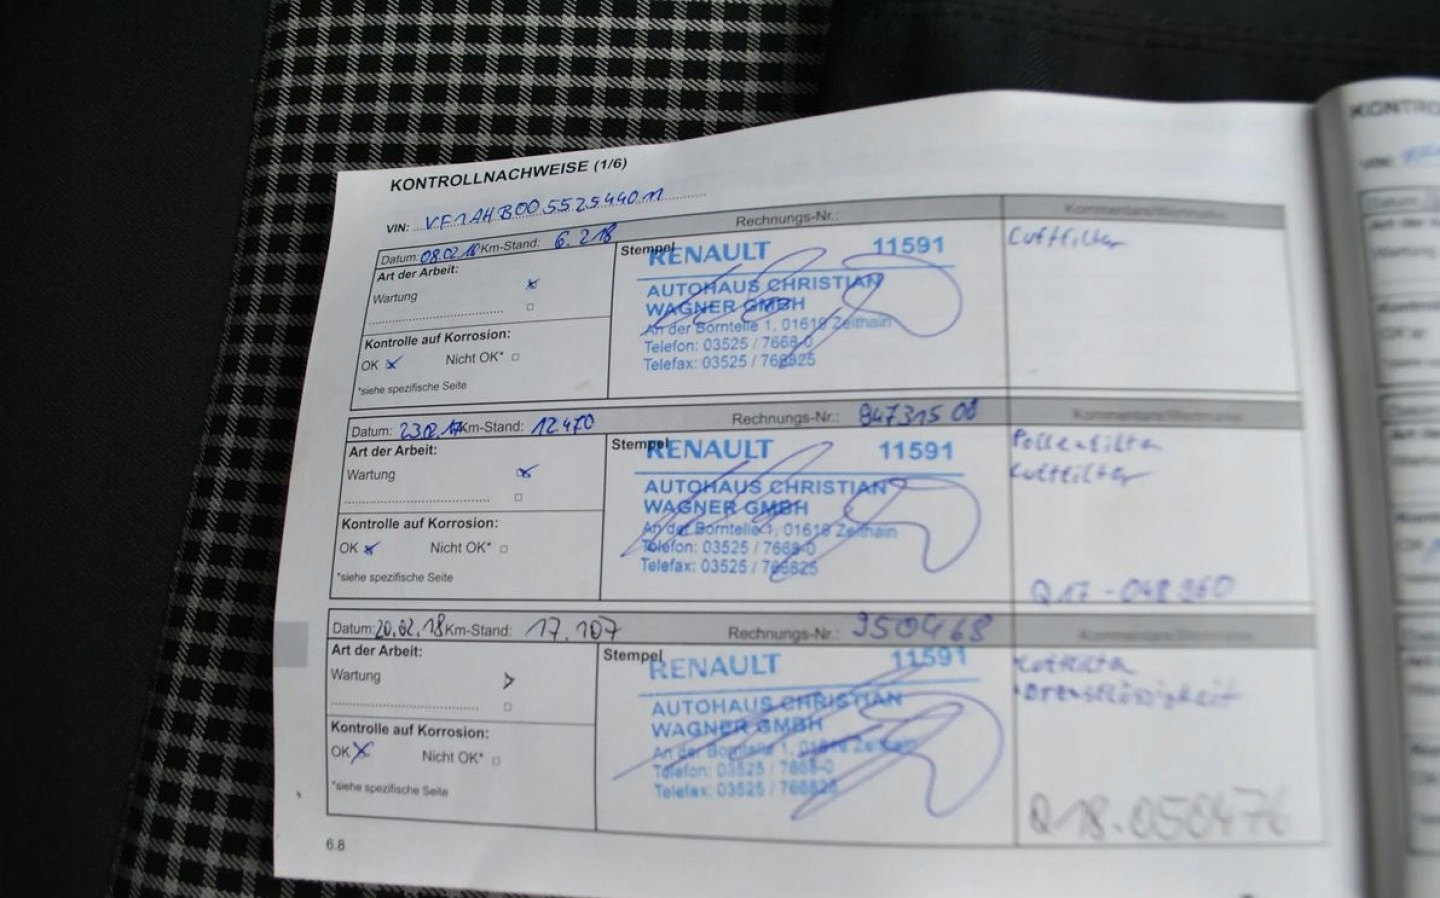 KONTROLLNACHWEISE (1/6)
VIN: VF1AHB00552544011
Datum: 08.02.16 Km-Stand: 6.218 Rechnungs-Nr.:
Art der Arbeit:
Wartung
Kontrolle auf Korrosion:
OK Nicht OK*
*siehe spezifische Seite
Stempel
RENAULT 11591
AUTOHAUS CHRISTIAN
WAGNER GMBH
An der Borntelle 1, 01619 Zeithain
Telefon: 03525 / 7668-0
Telefax: 03525 / 766825
Luftfilter
Datum: 23.02.17 Km-Stand: 12.470 Rechnungs-Nr.: 94731500
Art der Arbeit:
Wartung
Kontrolle auf Korrosion:
OK Nicht OK*
*siehe spezifische Seite
Stempel
RENAULT 11591
AUTOHAUS CHRISTIAN
WAGNER GMBH
An der Borntelle 1, 01619 Zeithain
Telefon: 03525 / 7668-0
Telefax: 03525 / 766825
Pollenfilter
Luftfilter
Q17-048960
Datum: 20.02.18 Km-Stand: 17.107 Rechnungs-Nr.: 950468
Art der Arbeit:
Wartung
Kontrolle auf Korrosion:
OK Nicht OK*
*siehe spezifische Seite
Stempel
RENAULT 11591
AUTOHAUS CHRISTIAN
WAGNER GMBH
An der Borntelle 1, 01619 Zeithain
Telefon: 03525 / 7668-0
Telefax: 03525 / 766825
Luftfilter
Bremsflüssigkeit
Q18-050476
6.8